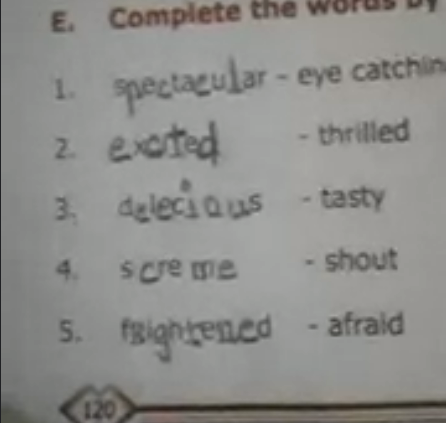 E. Complete the words by
1. spectacular - eye catchin
2. excited - thrilled
3. delecious - tasty
4. screme - shout
5. frightened - afraid
120